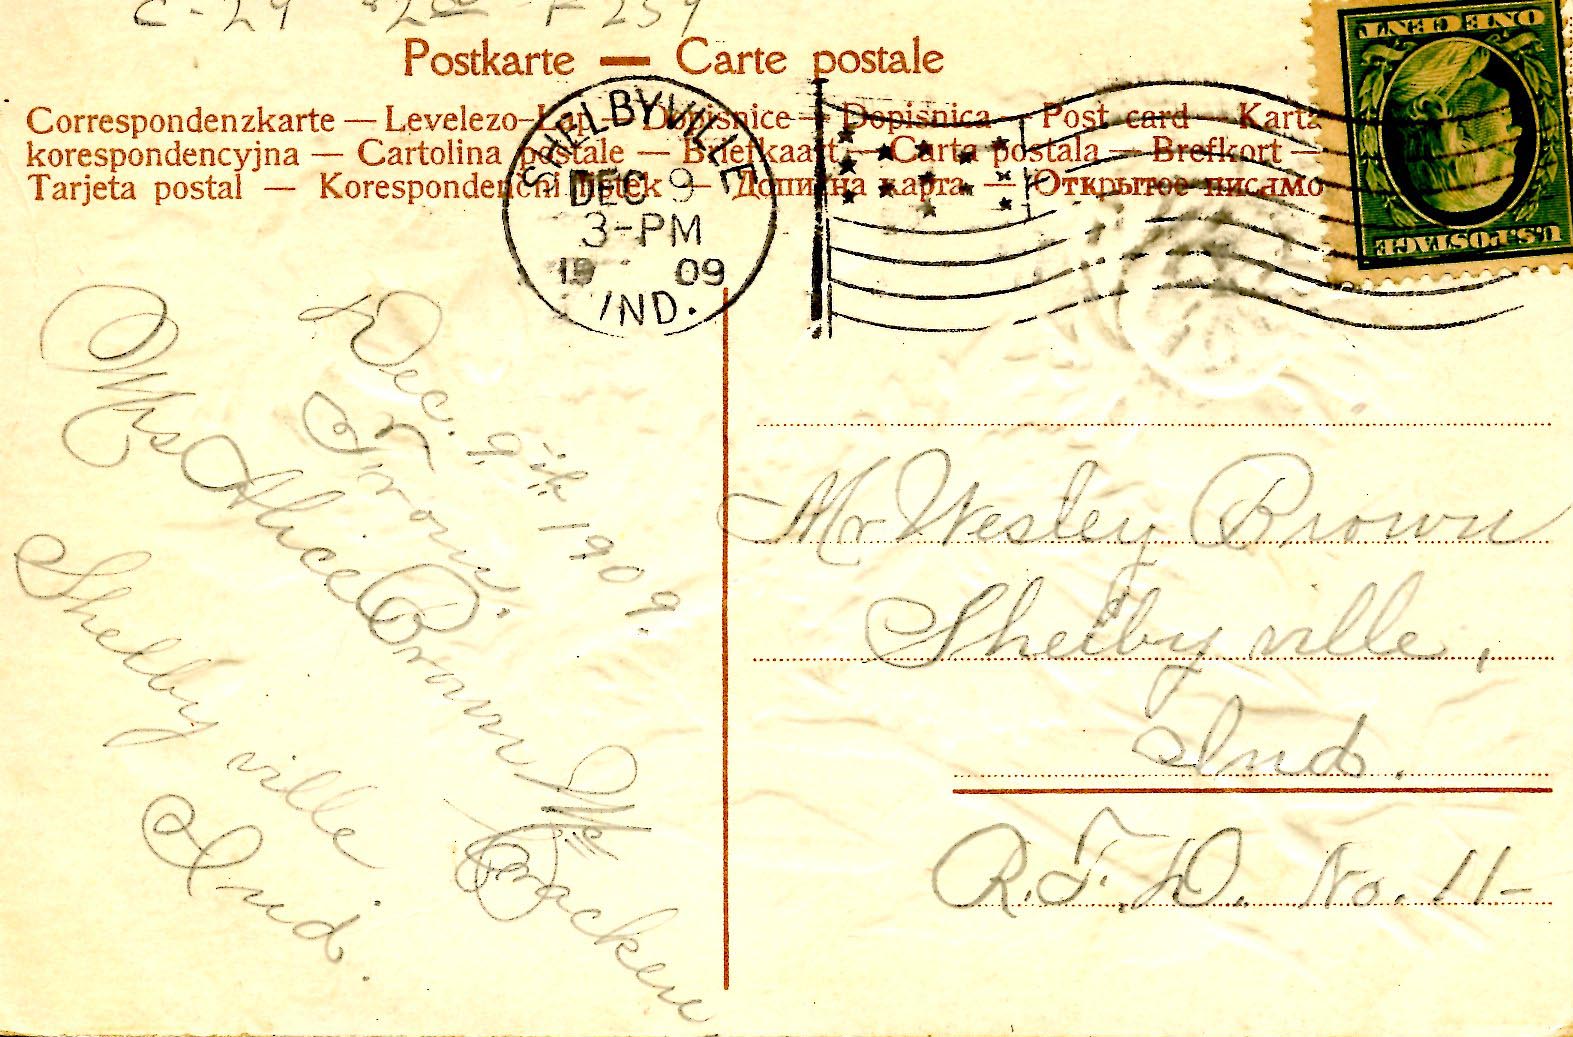 C-29 $2.00 F239
Postkarte — Carte postale
Correspondenzkarte — Levelezo-Lap — Dopisnice — Dopisnica — Post card — Karta
korespondencyjna — Cartolina postale — Briefkaart — Carta postala — Brefkort —
Tarjeta postal — Korespondencni listek — Дописна карта — Открытое писамо
SHELBYVILLE
DEC 9
3-PM
19 09
IND.
ONE CENT
U.S. POSTAGE
Dec. 9th 1909.
From.
Mrs Alice Brown Mc
Cracken
Shelbyville
Ind.
Mr Wesley Brown
Shelbyville,
Ind.
R.F.D. No. 11-